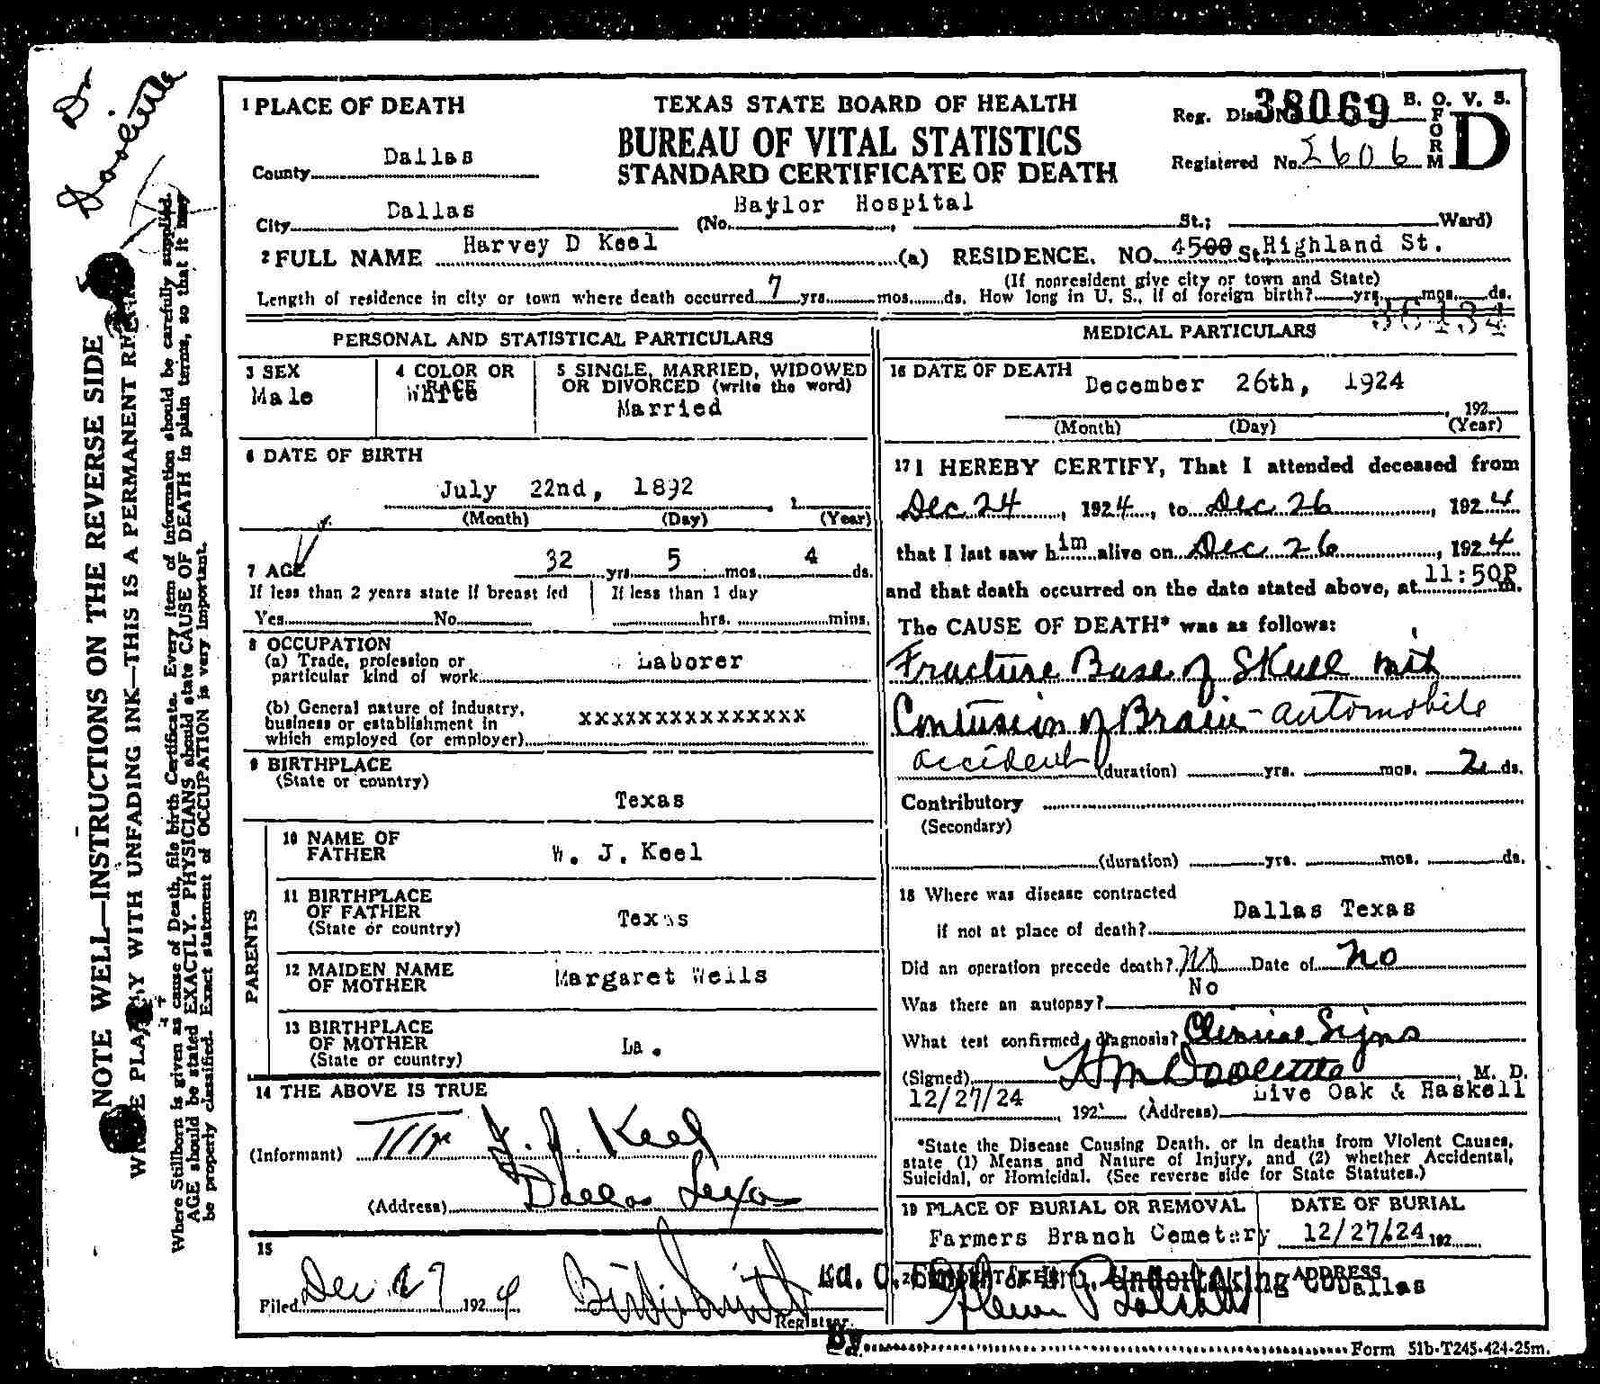 Dr
Doolittle
NOTE WELL—INSTRUCTIONS ON THE REVERSE SIDE
WRITE PLAINLY WITH UNFADING INK—THIS IS A PERMANENT RE
Where Stillborn is given as cause of Death, file birth Certificate. Every item of information should be carefully supplied.
AGE should be stated EXACTLY. PHYSICIANS should state CAUSE OF DEATH in plain terms, so that it may
be properly classified. Exact statement of OCCUPATION is very important.
TEXAS STATE BOARD OF HEALTH
BUREAU OF VITAL STATISTICS
STANDARD CERTIFICATE OF DEATH
Reg. Dis 38069 B. O. V. S.
FORM D
Registered No. 2606
1 PLACE OF DEATH
County Dallas
City Dallas (No. Baylor Hospital St.; Ward)
2 FULL NAME Harvey D Keel (a) RESIDENCE. NO. 4500 St. Highland St.
(If nonresident give city or town and State)
Length of residence in city or town where death occurred 7 yrs. mos. ds. How long in U. S., if of foreign birth? yrs. mos. ds.
36134
PERSONAL AND STATISTICAL PARTICULARS
3 SEX
Male
4 COLOR OR RACE
White
5 SINGLE, MARRIED, WIDOWED
OR DIVORCED (write the word)
Married
6 DATE OF BIRTH
July 22nd, 1892
(Month) (Day) (Year)
7 AGE 32 yrs. 5 mos. 4 ds.
If less than 2 years state if breast fed If less than 1 day
Yes No hrs. mins.
8 OCCUPATION
(a) Trade, profession or
particular kind of work Laborer
(b) General nature of industry,
business or establishment in
which employed (or employer) xxxxxxxxxxxxxxx
9 BIRTHPLACE
(State or country)
Texas
PARENTS
10 NAME OF
FATHER W. J. Keel
11 BIRTHPLACE
OF FATHER
(State or country) Texas
12 MAIDEN NAME
OF MOTHER Margaret Wells
13 BIRTHPLACE
OF MOTHER
(State or country) La.
14 THE ABOVE IS TRUE
(Informant) Mr J. J. Keel
(Address) Dallas Texas
15
Filed Dec 27 1924
Registrar.
MEDICAL PARTICULARS
16 DATE OF DEATH December 26th, 1924
, 192
(Month) (Day) (Year)
17 I HEREBY CERTIFY, That I attended deceased from
Dec 24, 1924, to Dec 26, 1924
that I last saw him alive on Dec 26, 1924
and that death occurred on the date stated above, at 11:50P m.
The CAUSE OF DEATH* was as follows:
Fracture Base of Skull with
Contusion of Brain - automobile
accident (duration) yrs. mos. 2 ds.
Contributory
(Secondary)
(duration) yrs. mos. ds.
18 Where was disease contracted
if not at place of death? Dallas Texas
Did an operation precede death? No Date of No
Was there an autopsy? No
What test confirmed diagnosis? Clinical Signs
(Signed) HM Doolittle, M. D.
12/27/24, 192 (Address) Live Oak & Haskell
*State the Disease Causing Death, or in deaths from Violent Causes,
state (1) Means and Nature of Injury, and (2) whether Accidental,
Suicidal, or Homicidal. (See reverse side for State Statutes.)
19 PLACE OF BURIAL OR REMOVAL
Farmers Branch Cemetery
DATE OF BURIAL
12/27/24 192
Ed. C. Smith & Bro. Undertaking Co
ADDRESS
Dallas
By
Form 51b-T245-424-25m.